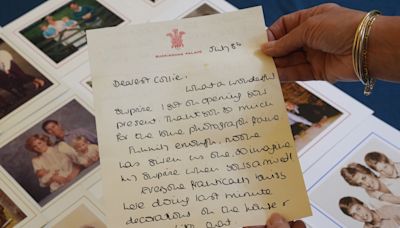 BUCKINGHAM PALACE
July 86
Dearest Collie,
What a wonderful
surprise I got on opening your
present. Thank you so much
for the lovely photograph frame
Funnily enough, no one
has given us one, so imagine
my surprise when yours arrived!
Everyone frantically busy
here doing last minute
decorations on the house &